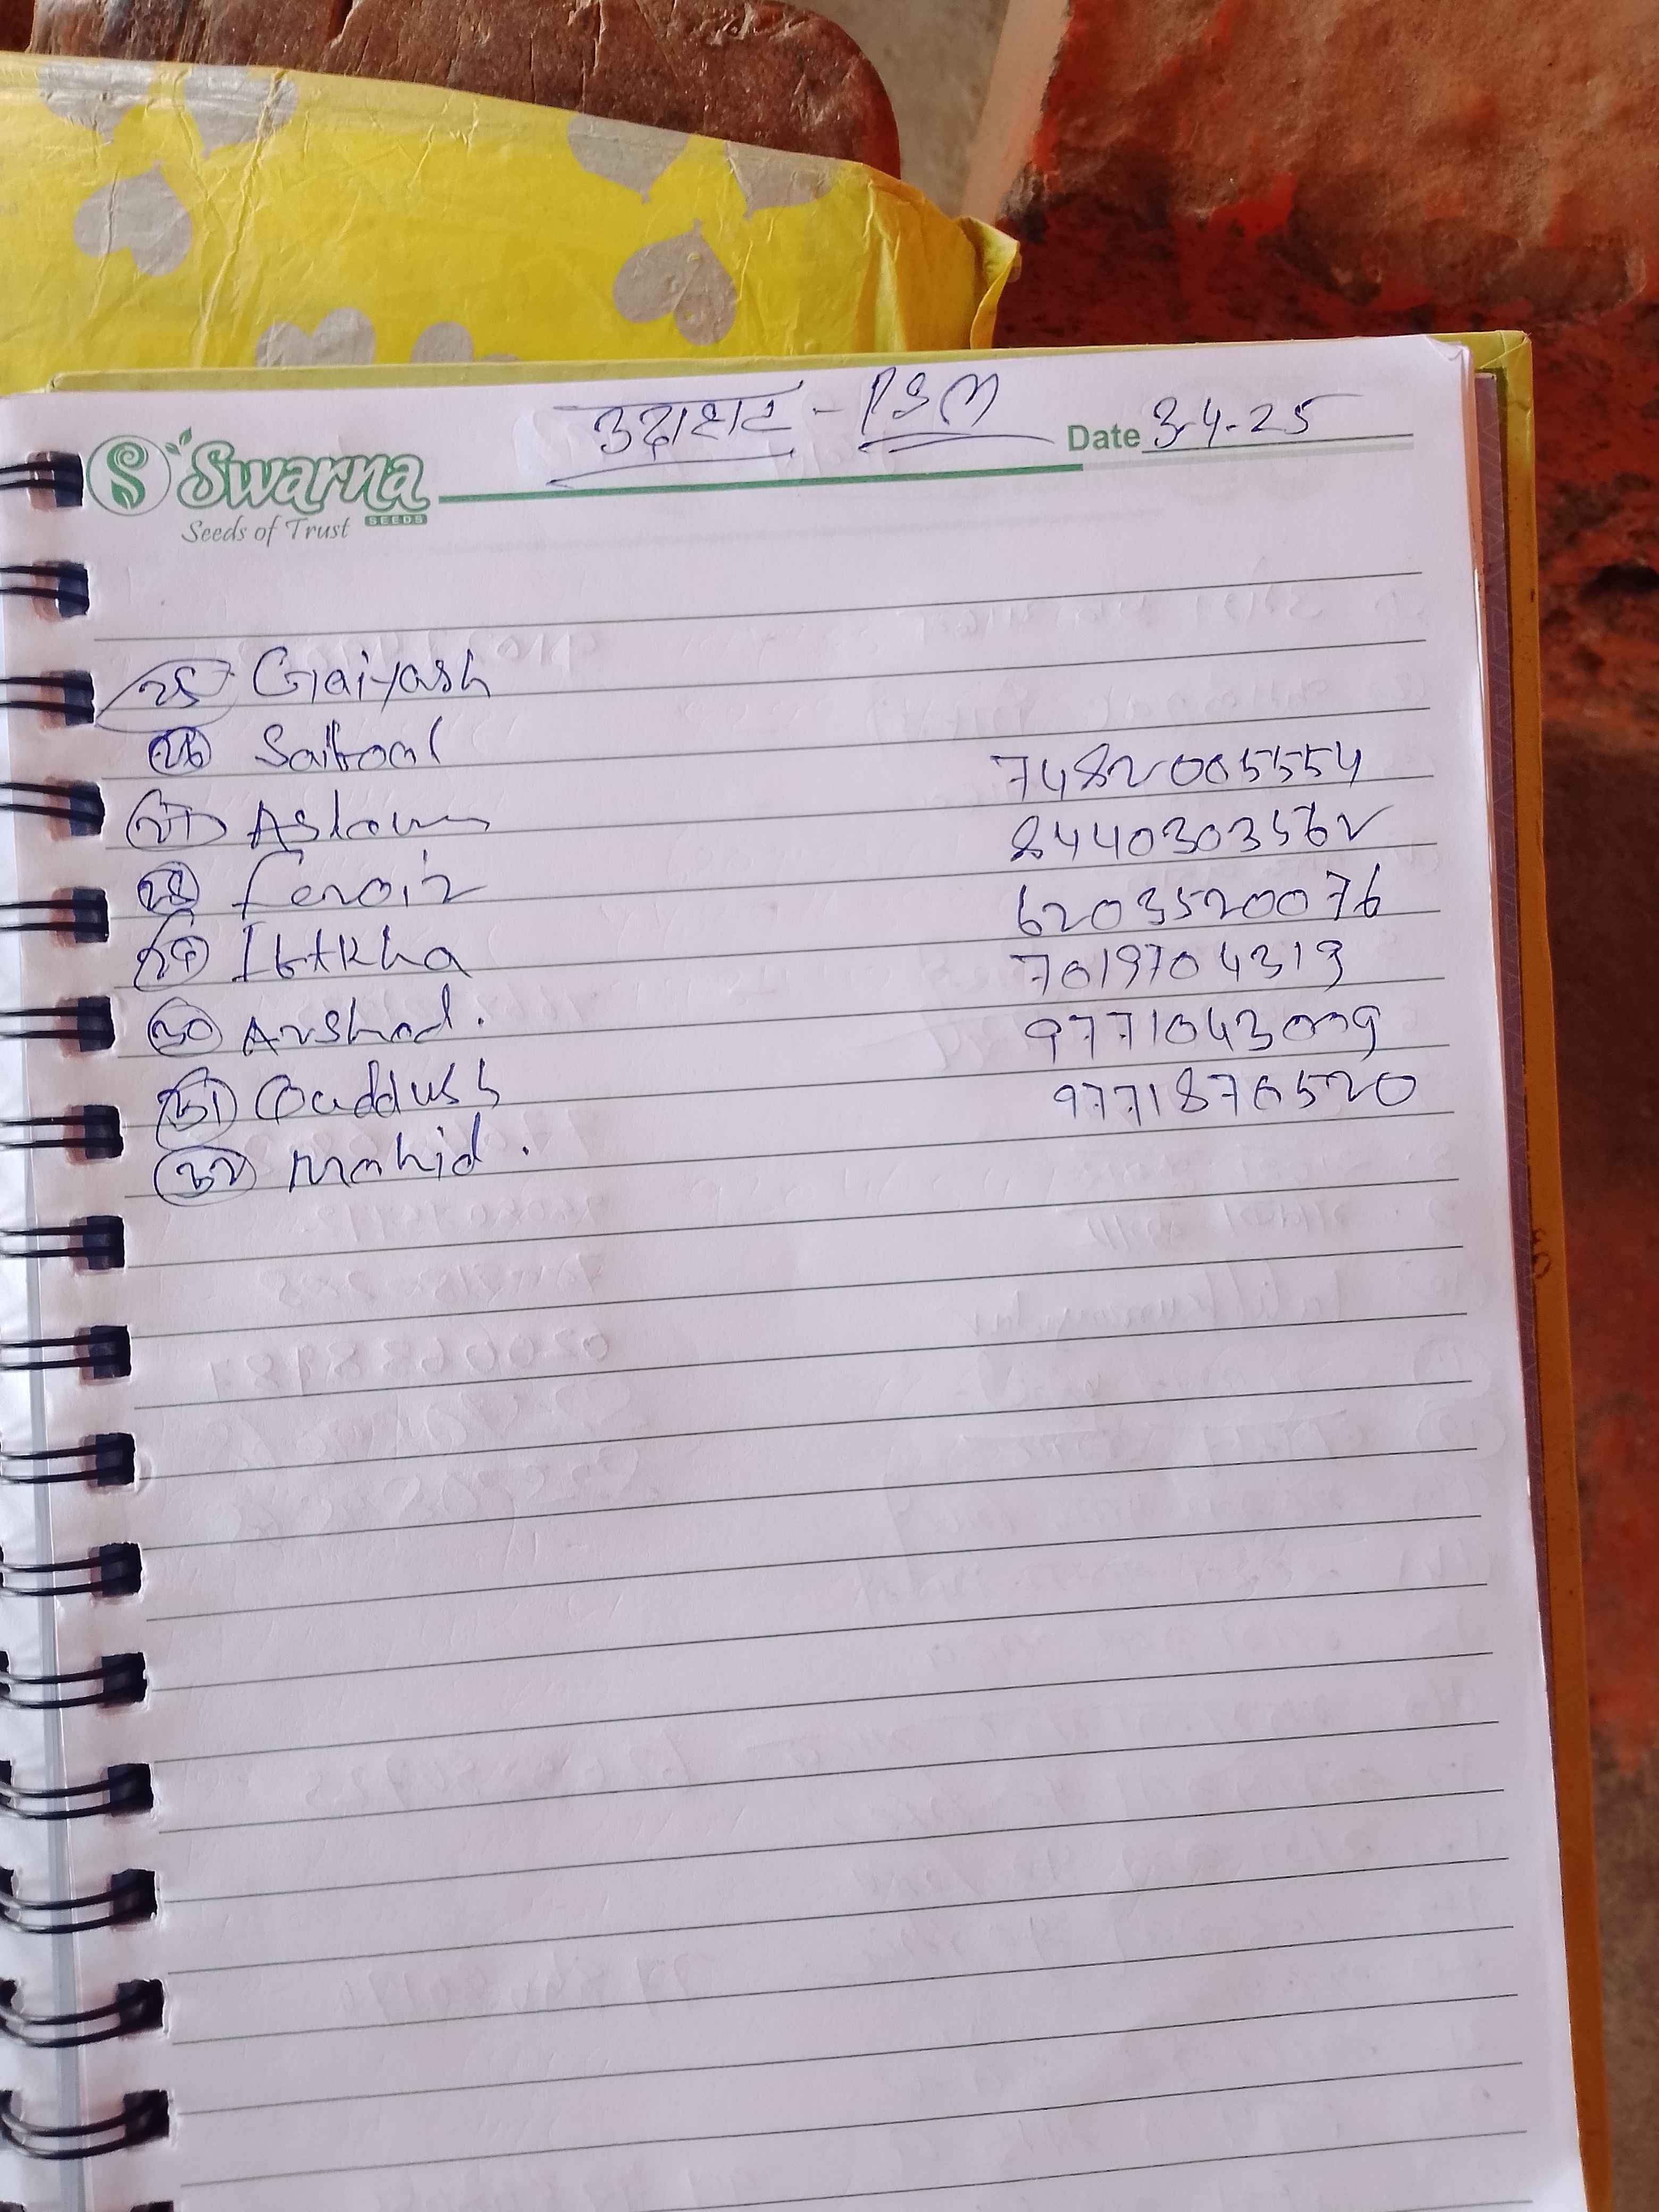 उदाहाट - PSM
Date 3.4.25
Swarna
SEEDS
Seeds of Trust
25 Gaiyash
26 Saifool
27 Aslam 7482005554
28 Feroiz 8440303562
29 Iftkha 6203520076
30 Arshad. 7019704313
31 Quddush 9771043009
32 Mahid. 9771876520